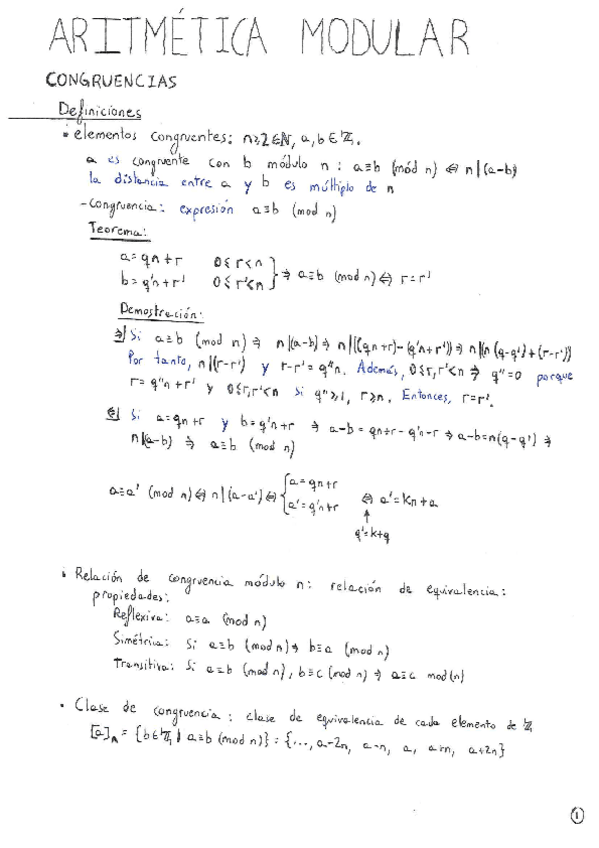 ARITMÉTICA MODULAR
CONGRUENCIAS
Definiciones
• elementos congruentes: n≥2 ∈ ℕ, a, b ∈ ℤ.
a es congruente con b módulo n : a≡b (mód n) ⇔ n|(a-b)
la distancia entre a y b es múltiplo de n
-Congruencia: expresión a≡b (mod n)
Teorema:
a=qn+r 0≤r<n
b=q'n+r' 0≤r'<n } ⇒ a≡b (mod n) ⇔ r=r'
Demostración:
⇒| Si a≡b (mod n) ⇒ n|(a-b) ⇒ n|((qn+r)-(q'n+r')) ⇒ n|(n(q-q')+(r-r'))
Por tanto, n|(r-r') y r-r'=q''n. Además, 0≤r,r'<n ⇒ q''=0 porque
r=q''n+r' y 0≤r,r'<n si q''≥1, r≥n. Entonces, r=r'.
⇐| Si a=qn+r y b=q'n+r ⇒ a-b=qn+r-q'n-r ⇒ a-b=n(q-q') ⇒
n|(a-b) ⇒ a≡b (mod n)
a≡a' (mod n) ⇔ n|(a-a') ⇔ { a=qn+r
a'=q'n+r ⇔ a'=kn+a
↑
q'=k+q
• Relación de congruencia módulo n: relación de equivalencia:
propiedades:
Reflexiva: a≡a (mod n)
Simétrica: Si a≡b (mod n) ⇒ b≡a (mod n)
Transitiva: Si a≡b (mod n), b≡c (mod n) ⇒ a≡c mod(n)
• Clase de congruencia : clase de equivalencia de cada elemento de ℤ
[a]ₙ = {b∈ℤ | a≡b (mod n)} = {..., a-2n, a-n, a, a+n, a+2n}
1